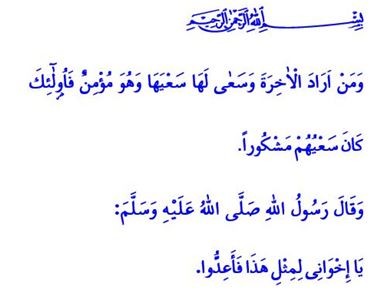 بِسْمِ اللهِ الرَّحْمٰنِ الرَّحِيمِ
وَمَنْ اَرَادَ الْاٰخِرَةَ وَسَعٰى لَهَا سَعْيَهَا وَهُوَ مُؤْمِنٌ فَاُولٰٓئِكَ
كَانَ سَعْيُهُمْ مَشْكُوراً.
وَقَالَ رَسُولُ اللهِ صَلَّى اللهُ عَلَيْهِ وَسَلَّمَ:
يَا إِخْوَانِى لِمِثْلِ هَذَا فَأَعِدُّوا.